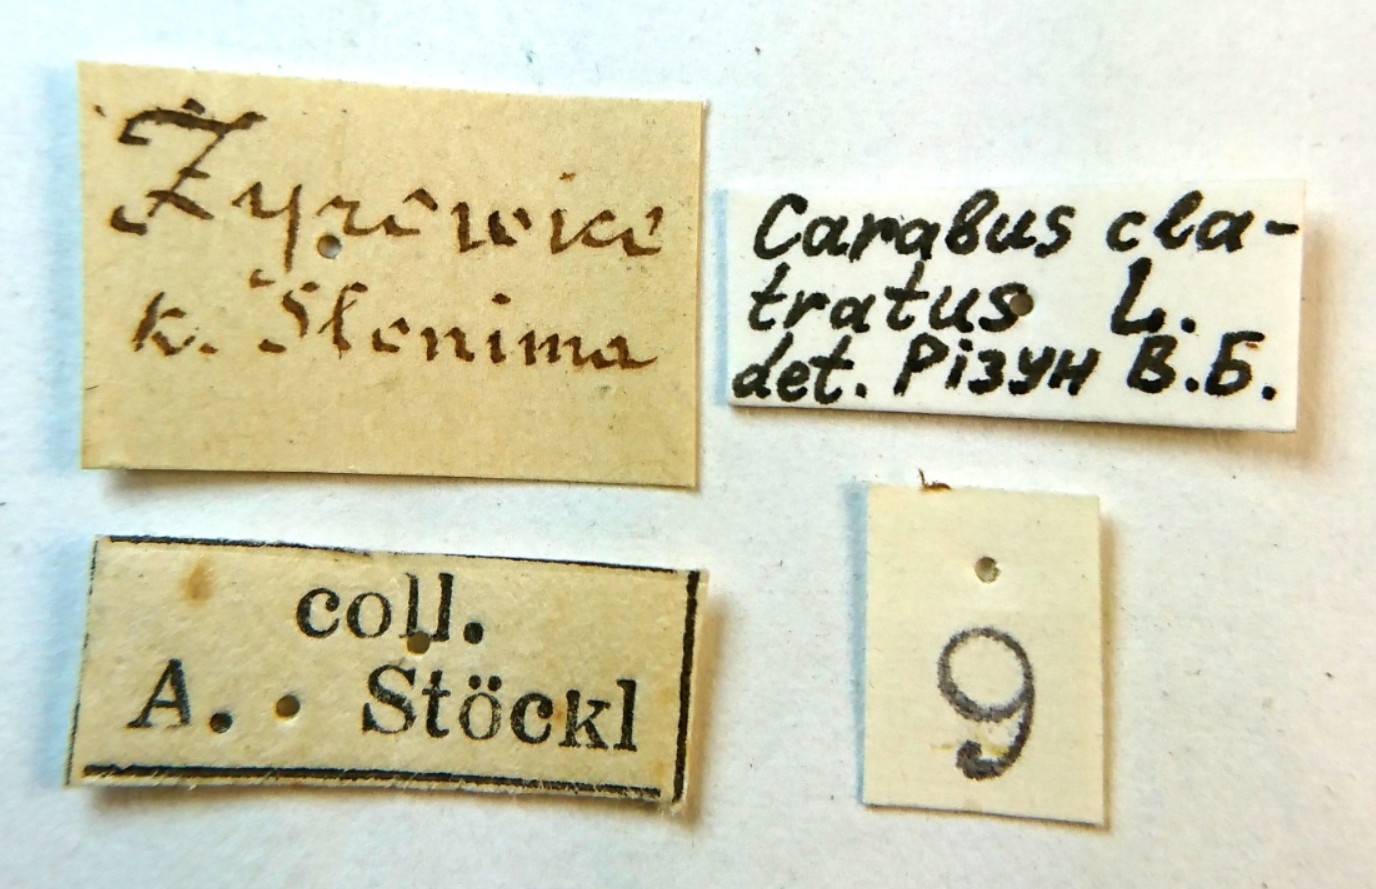 Żyrowice
k. Słonima
Carabus cla-
tratus L.
det. Різун В.Б.
coll.
A. Stöckl
9